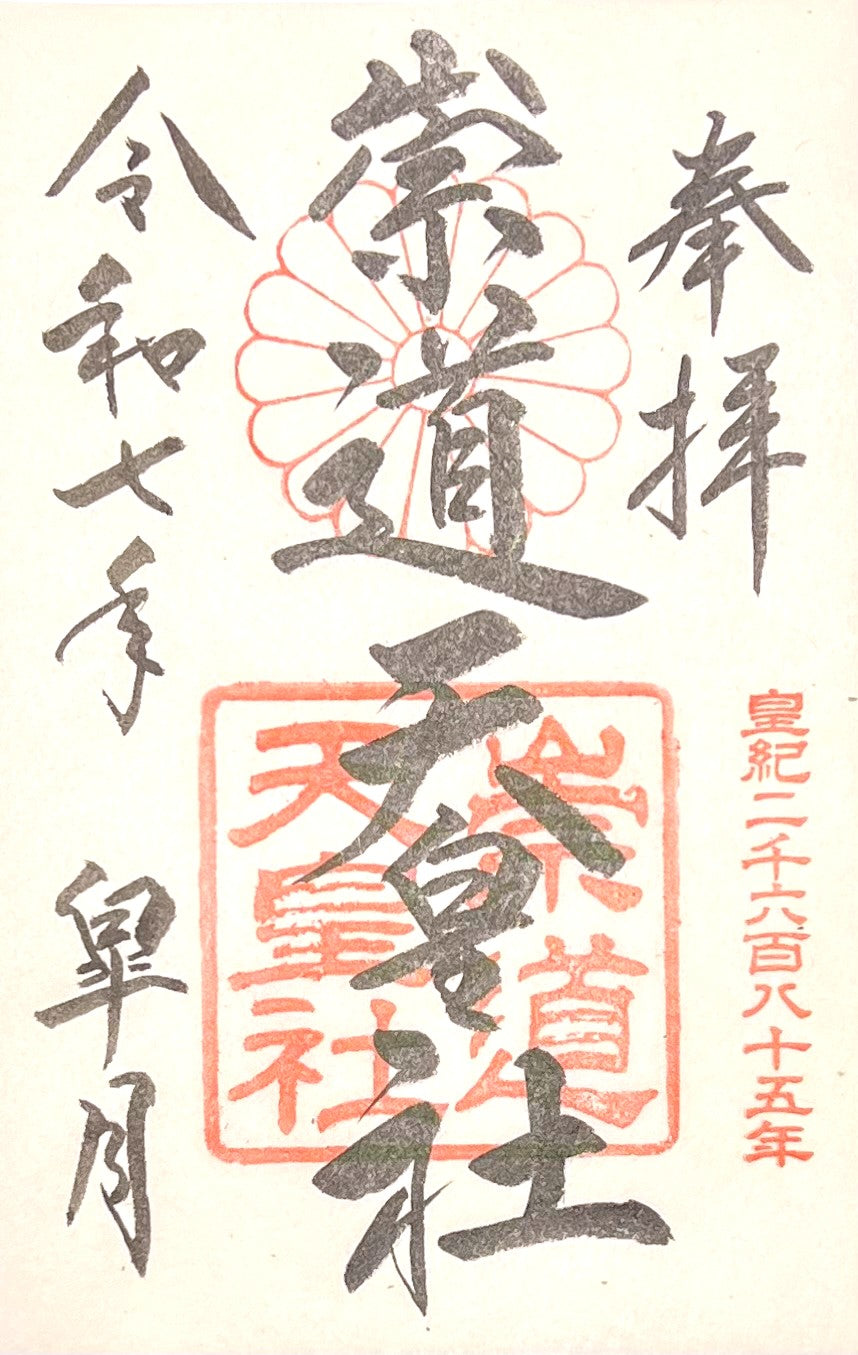 奉拝
皇紀二千六百八十五年
崇道天皇社
崇道
天皇社
令和七年
皐月